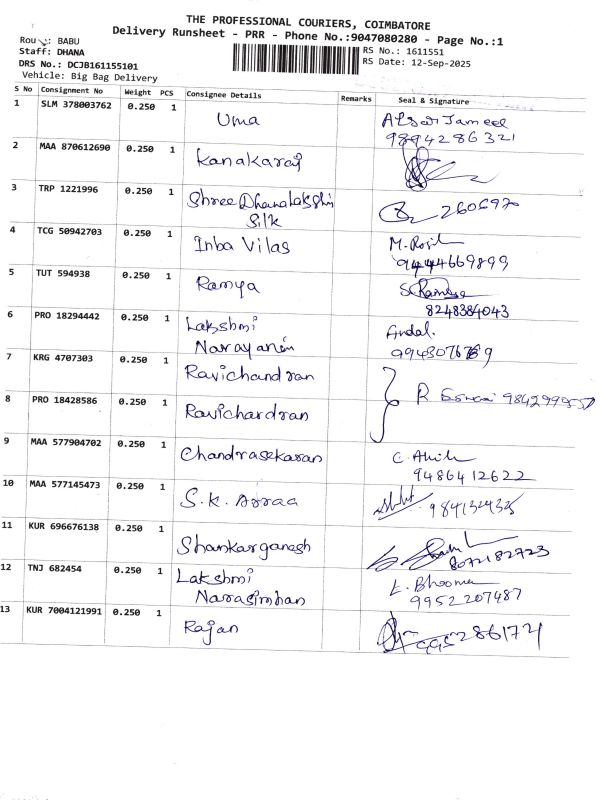 THE PROFESSIONAL COURIERS, COIMBATORE
Delivery Runsheet - PRR - Phone No.:9047080280 - Page No.:1
Rou : BABU
Staff: DHANA
RS No.: 1611551
DRS No.: DCJB161155101
RS Date: 12-Sep-2025
Vehicle: Big Bag Delivery
S No Consignment No Weight PCS Consignee Details Remarks Seal & Signature
1 SLM 378003762 0.250 1 Uma Jameel
9894286321
2 MAA 870612690 0.250 1 Kanakaraj
3 TRP 1221996 0.250 1 Shree Dhanalakshmi
Silk
4 TCG 50942703 0.250 1 Inba Vilas M.
9444669899
5 TUT 594938 0.250 1 Ramya
8248384043
6 PRO 18294442 0.250 1 Lakshmi
Narayanin Andal.
7 KRG 4707303 0.250 1 Ravichandran
8 PRO 18428586 0.250 1 Ravichardran R
9 MAA 577904702 0.250 1 Chandrasekaran C.
9486412622
10 MAA 577145473 0.250 1 S.K.
11 KUR 696676138 0.250 1 Shankarganesh
8072182723
12 TNJ 682454 0.250 1 Lakshmi
Narasimhan L. Bhooma
9952207487
13 KUR 7004121991 0.250 1 Rajan 9952861721